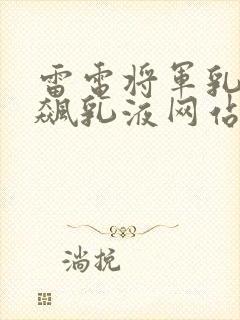 雷电将军乳
飙乳液网佔
淌挩